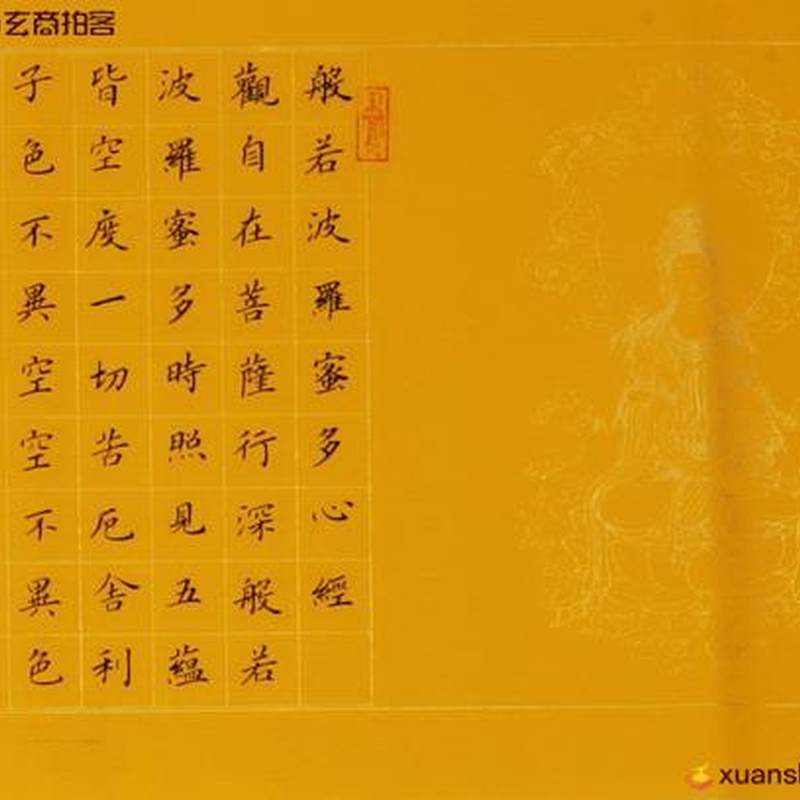 玄商拍客
般若波羅蜜多心經
觀自在菩薩行深般若
波羅蜜多時照見五蘊
皆空度一切苦厄舍利
子色不異空空不異色
xuansh